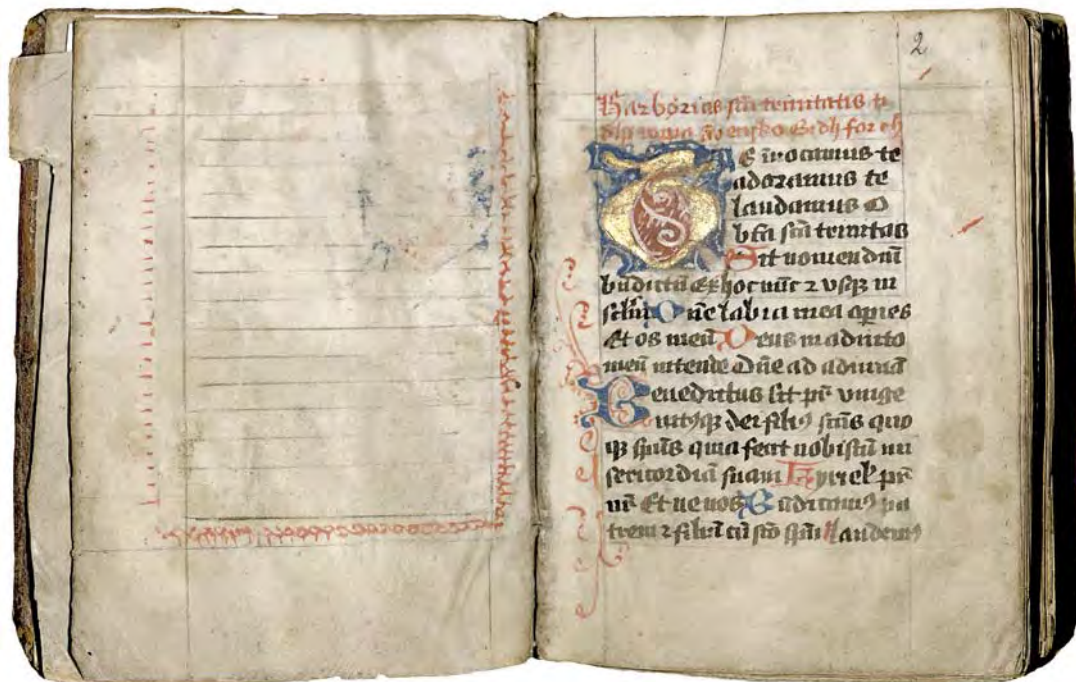 2
Har börias sc̄a trinitatis ti
E īuocamus te
adoramus te
laudamus O
bt̄a sc̄a trinitas
Sit nomen dn̄i
bn̄dictū Ex hoc nūc ⁊ vsqꝫ in
sclm̄ Dn̄e labia mea aperies
Et os meū Deus in adiuto
meū intende Dn̄e ad adiuuā
Benedictus sit pr̄ vnige
nitꝰqꝫ dei filiꝰ sc̄us quo
qꝫ sp̄us quia fecit nobiscū mi
sericordiā suam Kyriel pr̄
nr̄ Et ne nos Bn̄dicamꝰ pa
trem ⁊ filiū cū sc̄o sp̄u Laudemꝰ